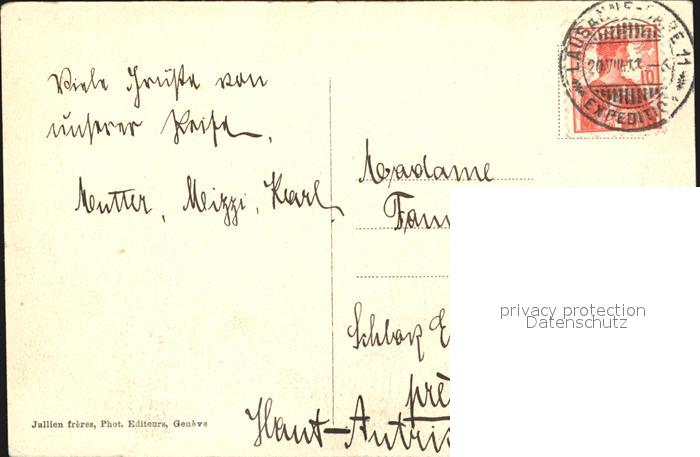 Viele Grüße von
unserer Reise,
Mutter, Mizzi, Karl,
Madame
Fann
Schloß E
prè
Haut-Autri
Jullien frères, Phot. Editeurs, Genève
LAUSANNE-GARE 11
20.VIII.11.-6
EXPEDITION
10
privacy protection
Datenschutz